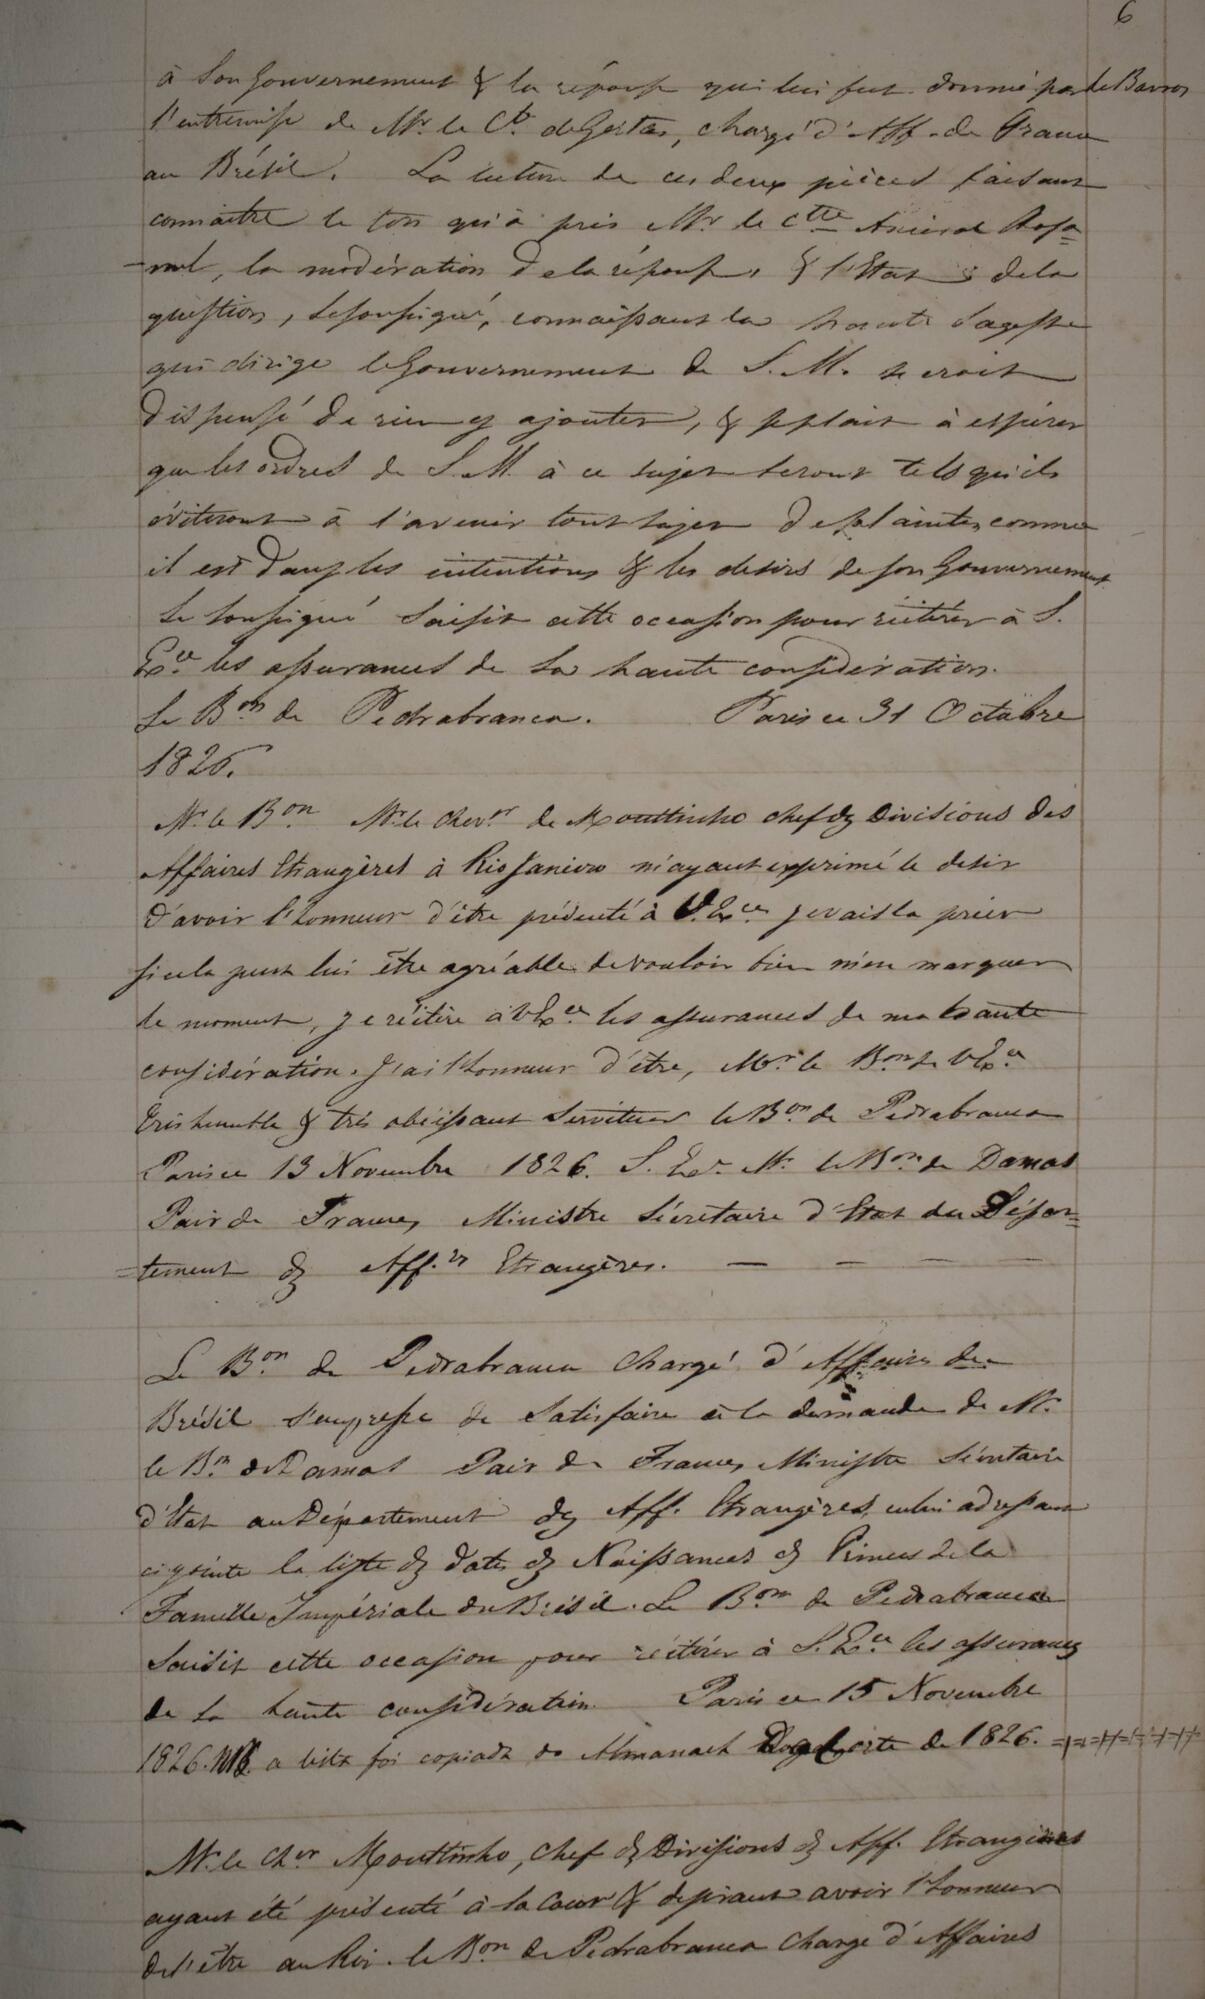 6
à Son Gouvernement & la réponse qui lui fut donné par le Baron
l'entremise de Mr. le Cte de Gestas, chargé d'Aff. de France
au Brésil. La lecture de ces deux pièces faisant
connaitre le ton qu'à pris Mr le Ctre Amiral Rosa=
=mel, la modération de la réponse, & l'Etat de la
question, le soussigné, connaissant la haute sagesse
qui dirige le Gouvernement de S. M. se croit
dispensé de rien y ajouter, & se plait à espérer
que les ordres de S. M. à ce sujet seront tels qu'ils
éviteront à l'avenir tout sujet de plaintes, comme
il est dans les intentions & les desirs de son Gouvernement
Le soussigné saisit cette occasion pour réitérer à S.
Exce les assurances de sa haute considération.
Le Bon de Pedrabranca. Paris ce 31 Octobre
1826.
Mr. le Bon. Mr. le chever de Mouttinho chef des Divisions des
Affaires Etrangères à Rio Janeiro m'ayant exprimé le desir
d'avoir l'honneur d'être présenté à V. Exce. je vais la prier
si cela peut lui être agréable de vouloir bien m'en marquer
le moment, je réitère à V Exce les assurances de ma haute
considération. J'ai l'honneur d'être, Mr. le Bon de V Exce
très humble & très obéissant Serviteur le Bon. de Pedrabranca
Paris ce 13 Novembre 1826. S. Exce Mr. le Bon de Damas
Pair de France, Ministre Sécretaire d'Etat du Dépar=
=tement des Aff.es Etrangères. — — — —
Le Bon de Pedrabranca Chargé d'Affaires du
Brésil s'empresse de Satisfaire à la demande de Mr.
le Bon de Damas Pair de France, Ministre Sécretaire
d'Etat au Département des Aff. Etrangères, en lui adressant
ci-jointe la liste des dates des Naissances des Princes de la
Famille Impériale du Brésil. Le Bon de Pedrabranca
Saisit cette occasion pour réitérer à S. Exce les assurances
de sa haute considération. Paris ce 15 Novembre
1826. NB. a lista foi copiada do Almanach da Corte de 1826. =+=+=#=#=#=#
Mr. le Cher Mouttinho, Chef des Divisions des Aff. Etrangères
ayant été présenté à la Cour & desirant avoir l'honneur
de l'être au Roi. le Bon de Pedrabranca Chargé d'Affaires